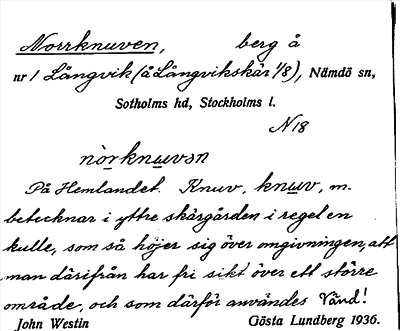 Norrknuven, berg å
nr 1 Långvik (å Långvikskär 1/8), Nämdö sn,
Sotholms hd, Stockholms l.
N 18
nòrknuvən
På Hemlandet. Knuv, knuv, m.
betecknar i yttre skärgården i regel en
kulle, som så höjer sig över omgivningen, att
man därifrån har fri sikt över ett större
område, och som därför användes Vänd!
John Westin Gösta Lundberg 1936.